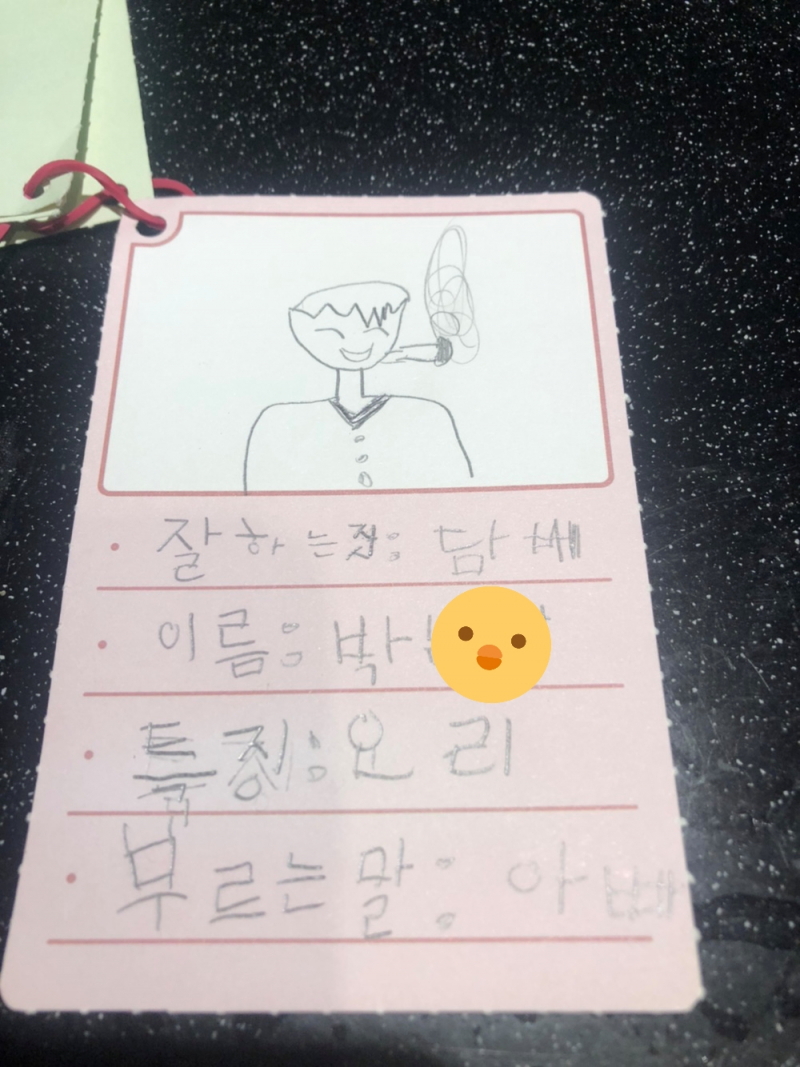 잘하는것: 담배
이름: 박
특징: 요리
부르는말: 아빠